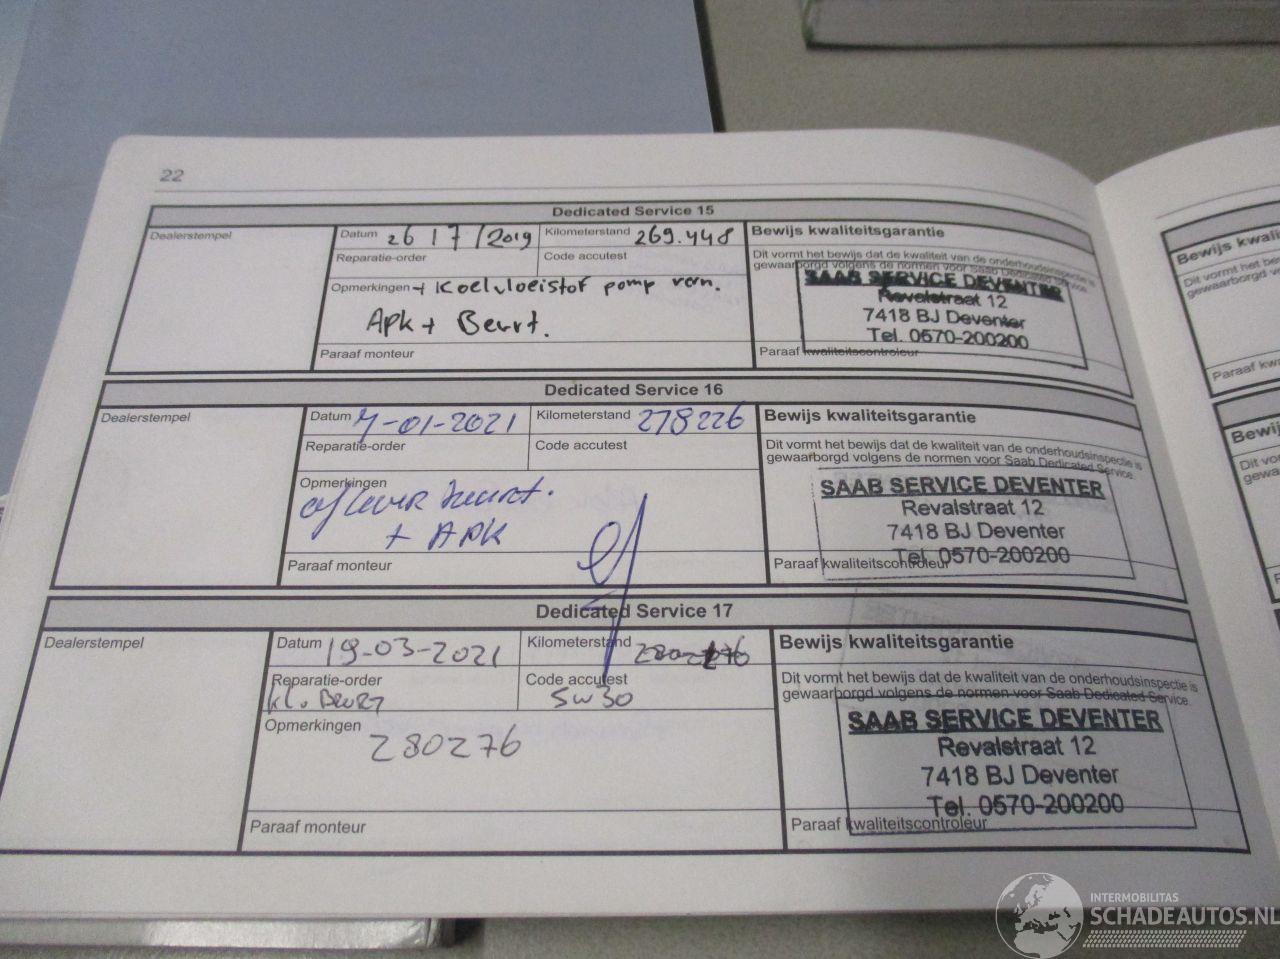 22
Dedicated Service 15
Dealerstempel
Datum 26/7/2019
Kilometerstand 269.448
Reparatie-order
Code accutest
Opmerkingen + Koelvloeistof pomp vern.
Apk + Beurt.
Paraaf monteur
Bewijs kwaliteitsgarantie
Dit vormt het bewijs dat de kwaliteit van de onderhoudsinspectie is
gewaarborgd volgens de normen voor Saab Dedicated Service.
SAAB SERVICE DEVENTER
Revalstraat 12
7418 BJ Deventer
Tel. 0570-200200
Paraaf kwaliteitscontroleur
Dedicated Service 16
Dealerstempel
Datum 7-01-2021
Kilometerstand 278226
Reparatie-order
Code accutest
Opmerkingen
aflever beurt.
+ APK
Paraaf monteur
Bewijs kwaliteitsgarantie
Dit vormt het bewijs dat de kwaliteit van de onderhoudsinspectie is
gewaarborgd volgens de normen voor Saab Dedicated Service.
SAAB SERVICE DEVENTER
Revalstraat 12
7418 BJ Deventer
Tel. 0570-200200
Paraaf kwaliteitscontroleur
Dedicated Service 17
Dealerstempel
Datum 19-03-2021
Kilometerstand
Reparatie-order
Kl. Beurt
Code accutest
5W30
Opmerkingen
280276
Paraaf monteur
Bewijs kwaliteitsgarantie
Dit vormt het bewijs dat de kwaliteit van de onderhoudsinspectie is
gewaarborgd volgens de normen voor Saab Dedicated Service.
SAAB SERVICE DEVENTER
Revalstraat 12
7418 BJ Deventer
Tel. 0570-200200
Paraaf kwaliteitscontroleur
INTERMOBILITAS
SCHADEAUTOS.NL